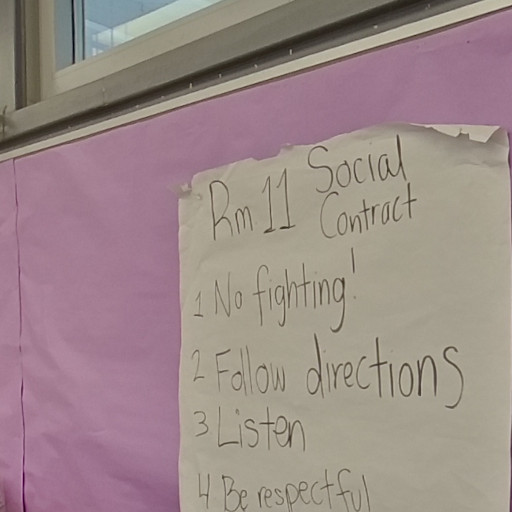 Rm 11 Social Contract
1 No fighting!
2 Follow directions
3 Listen
4 Be respectful